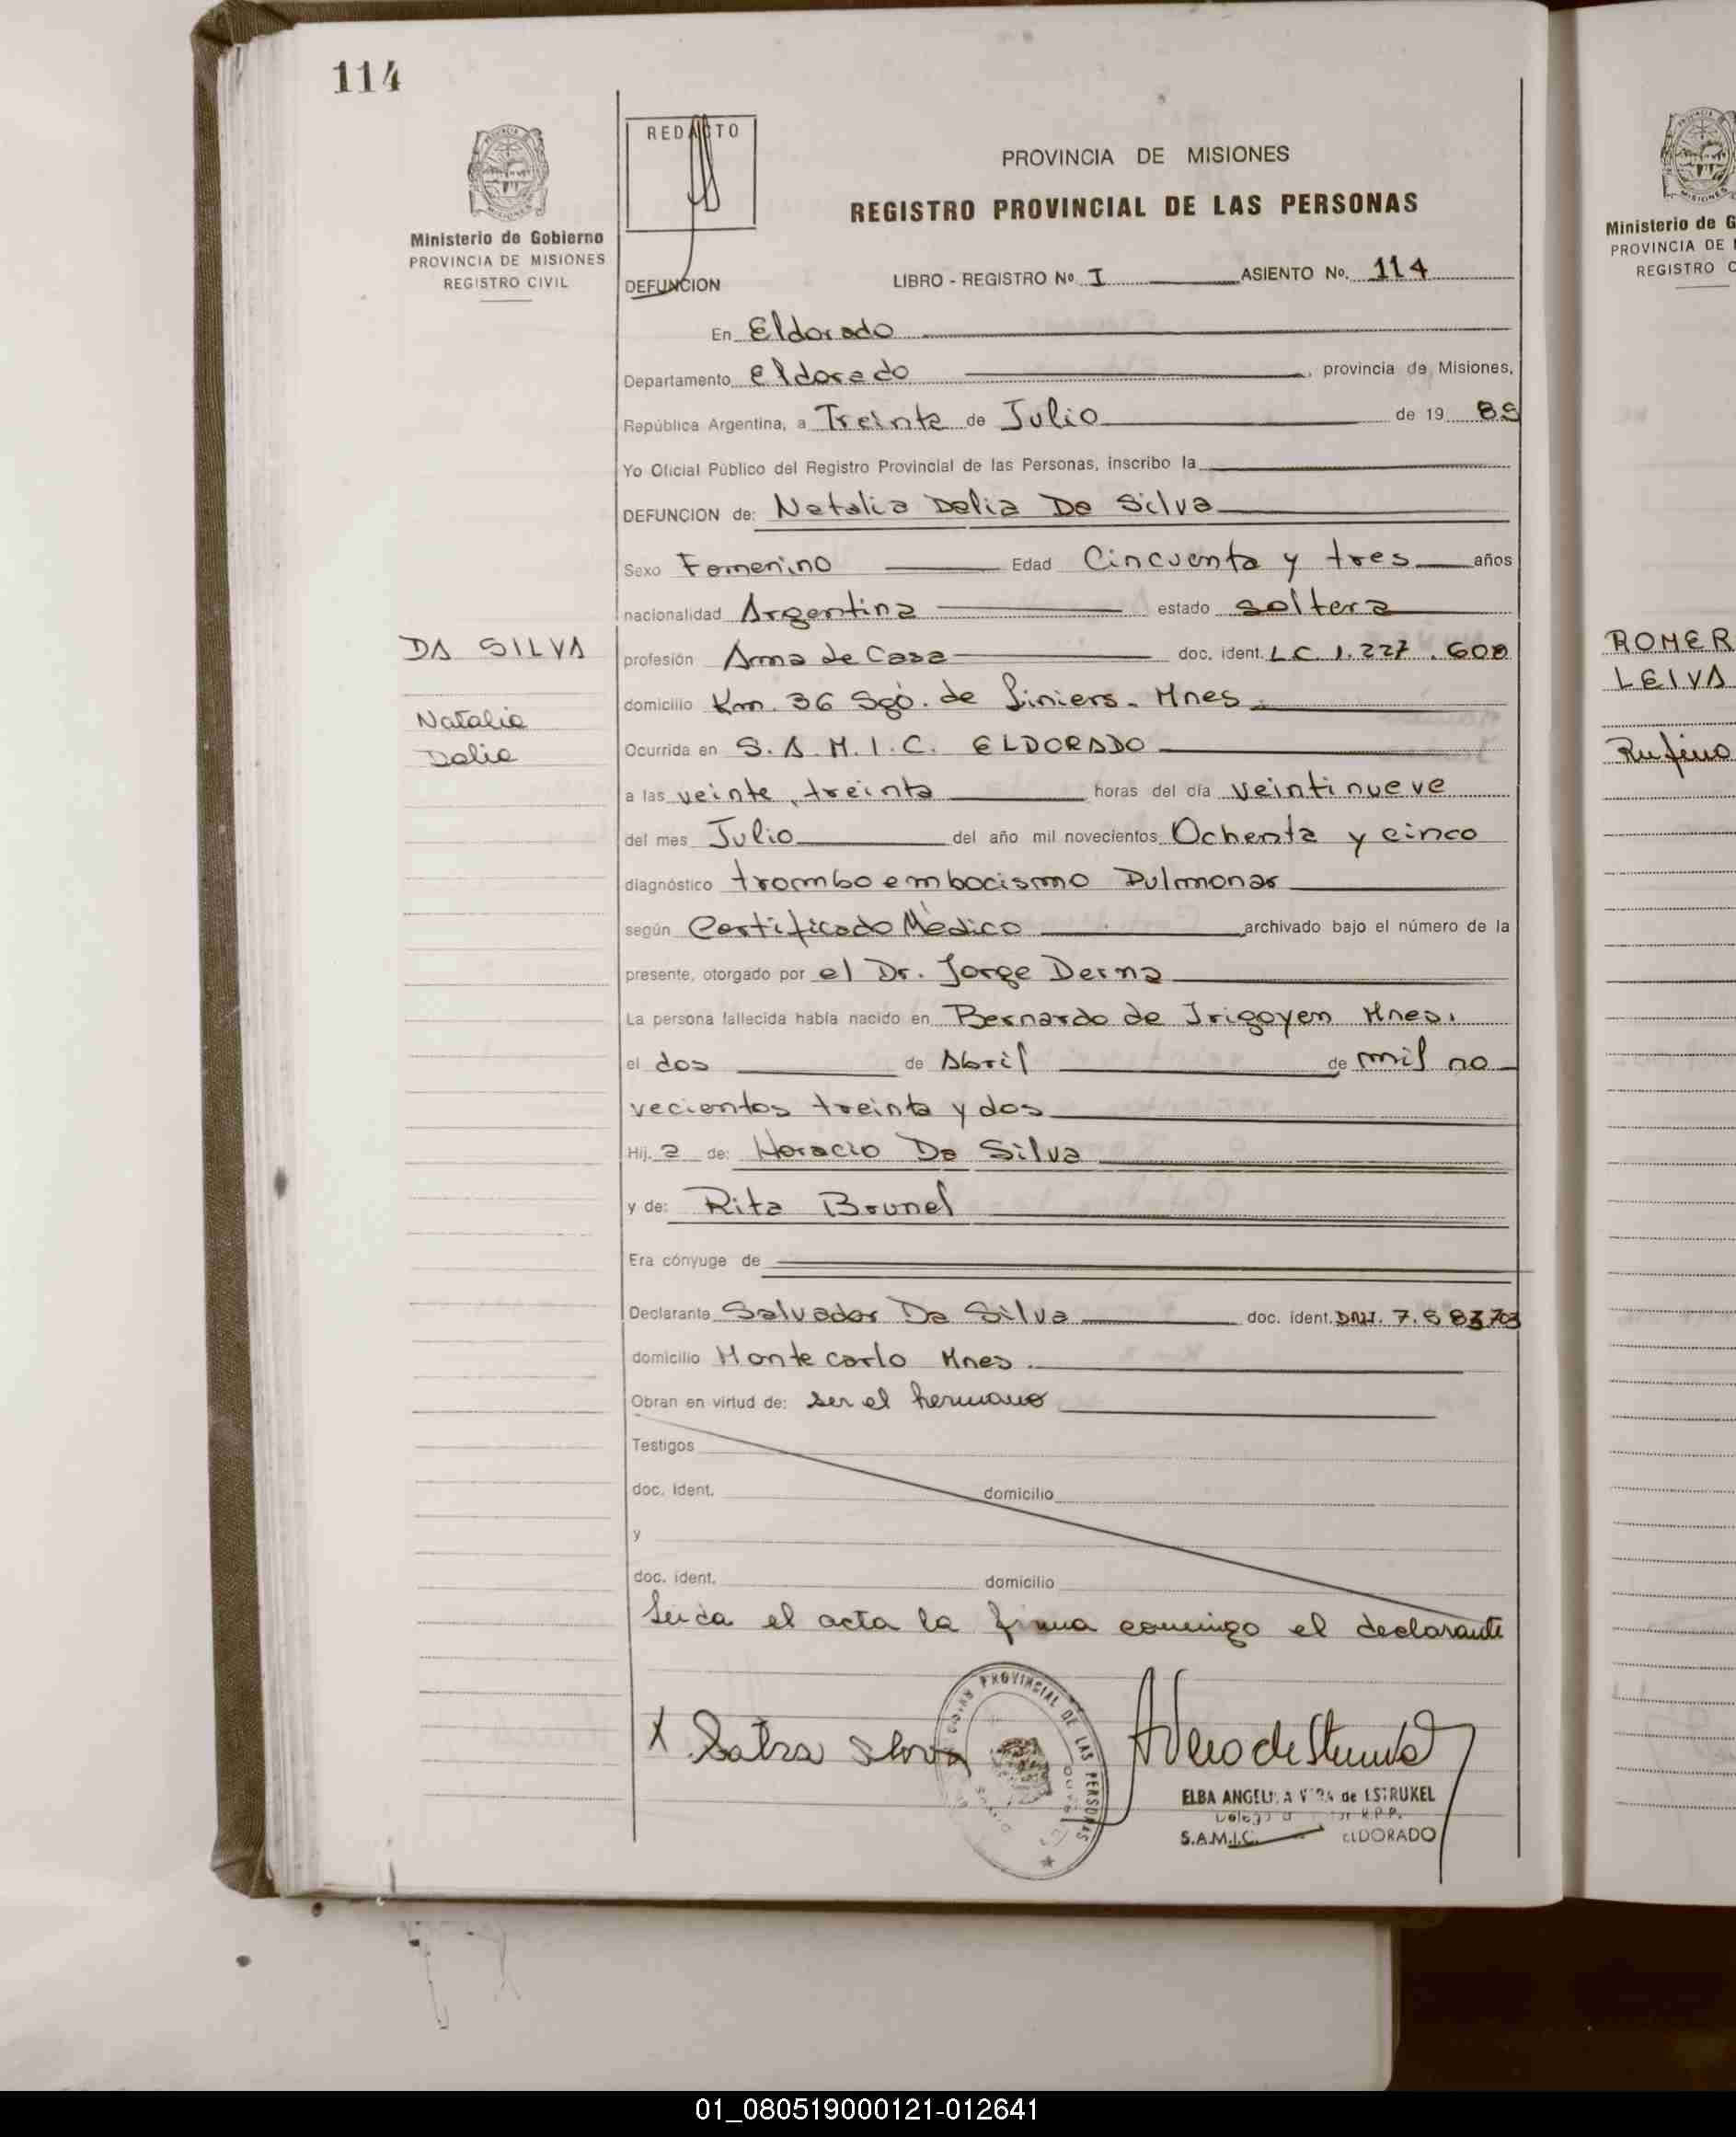 114
REDACTO
PROVINCIA DE MISIONES
REGISTRO PROVINCIAL DE LAS PERSONAS
Ministerio de Gobierno
PROVINCIA DE MISIONES
REGISTRO CIVIL
DEFUNCION LIBRO - REGISTRO No. I ASIENTO No. 114
En Eldorado
Departamento Eldorado, provincia de Misiones,
República Argentina, a Treinta de Julio de 19 85
Yo Oficial Público del Registro Provincial de las Personas, inscribo la
DEFUNCION de: Natalia Delia Da Silva
Sexo Femenino Edad Cincuenta y tres años
nacionalidad Argentina estado soltera
DA SILVA
Natalia
Delia
profesión Ama de Casa doc. ident. L C 1.227.608
domicilio Km. 36 Sgó. de Liniers. Mnes.
Ocurrida en S.A.M.I.C. ELDORADO
a las veinte, treinta horas del día veintinueve
del mes Julio del año mil novecientos Ochenta y cinco
diagnóstico tromboembocismo Pulmonar
según Certificado Médico archivado bajo el número de la
presente, otorgado por el Dr. Jorge Derna
La persona fallecida había nacido en Bernardo de Irigoyen Mnes.
el dos de Abril de mil no
vecientos treinta y dos
Hij. a de: Horacio Da Silva
y de: Rita Brunel
Era cónyuge de
Declarante Salvador Da Silva doc. ident. DNI. 7.583703
domicilio Monte carlo Mnes.
Obran en virtud de: ser el hermano
Testigos
doc. ident. domicilio
y
doc. ident. domicilio
Leída el acta la firma conmigo el declarante
X
PROVINCIAL DE LAS PERSONAS
ELBA ANGELICA de ESTRUKEL
R.P.P.
S.A.M.I.C. ELDORADO
Ministerio de G
PROVINCIA DE
REGISTRO C
ROMER
LEIVA
Rufino
01_080519000121-012641